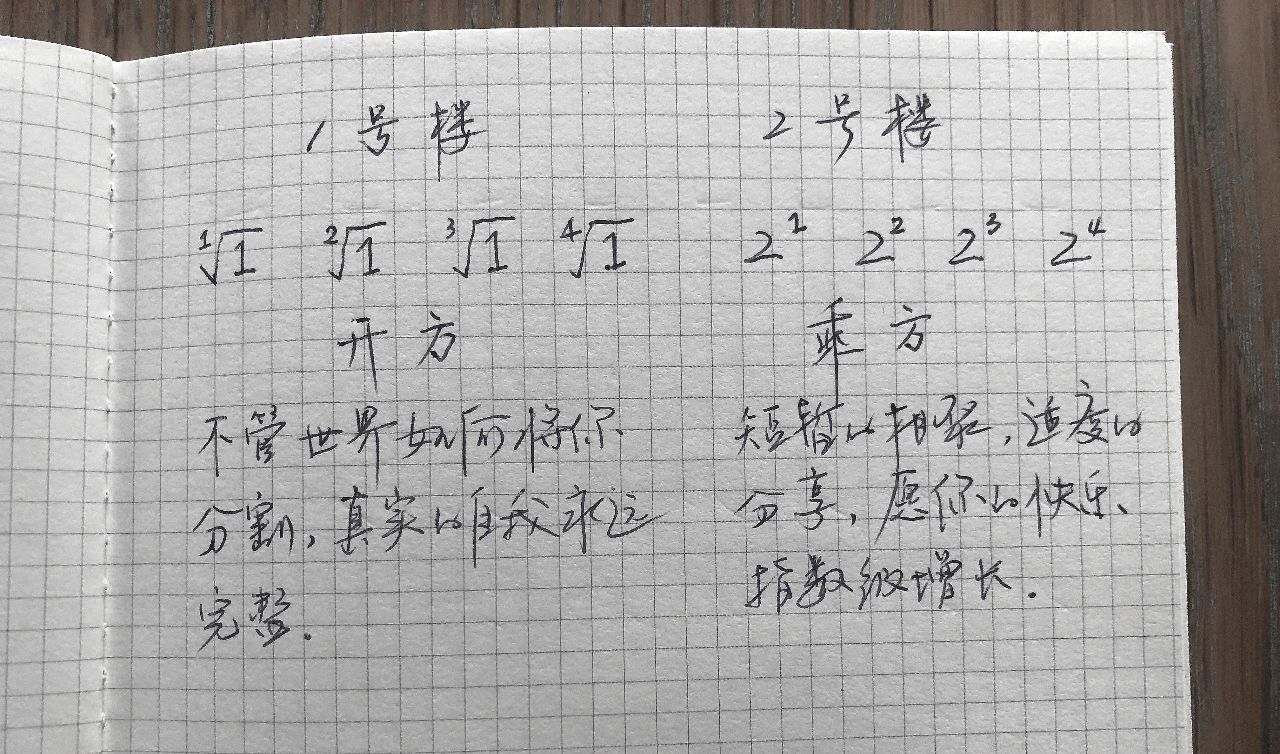 1号楼
¹√1 ²√1 ³√1 ⁴√1
开方
不管世界如何将你
分割，真实的自我永远
完整.
2号楼
2¹ 2² 2³ 2⁴
乘方
短暂的相聚，适度的
分享，愿你的快乐、
指数级增长.